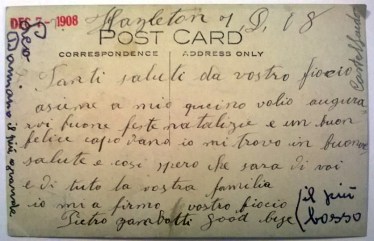 DEC 7 - 1908
Hazleton
POST CARD
CORRESPONDENCE
ADDRESS ONLY
Tanti saluti da vostro fiocio
asieme a mio qucino volio augura
rvi buone feste natalizie e un buon
felice capo dano io mi trovo in buona
salute e cosi spero che sara di voi
e di tuto la vostra familia
io mi a firmo vostro fiocio
Pietro good
il più
basso
il più grande